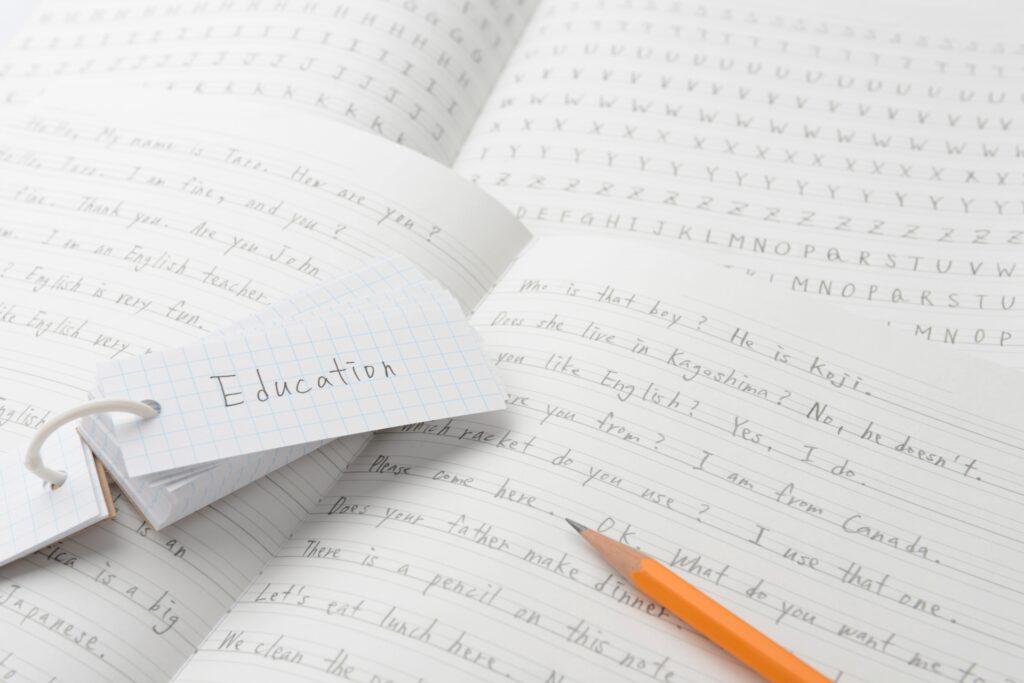 U U U U U U U U U U U U
V V V V V V V V V V V V
W W W W W W W W W W W W
X X X X X X X X X X X X
Y Y Y Y Y Y Y Y Y Y Y
Z Z Z Z Z Z Z Z Z Z Z
D E F G H I J K L M N O P Q R S T U V W
M N O P Q R S T U
M N O P
Hello. My name is Taro. How are you?
Hello Taro. I am fine, and you?
fine. Thank you. Are you John
I am an English teacher.
? English is very fun.
like English very
English
Education
is an
ica is a big
Japanese.
Who is that boy? He is Koji.
Does she live in Kagoshima? No, he doesn't.
you like English? Yes, I do.
are you from? I am from Canada.
Which racket do you use? I use that one.
Please come here. Ok. What do you want me to
Does your father make dinner.
There is a pencil on this note
Let's eat lunch here.
We clean the